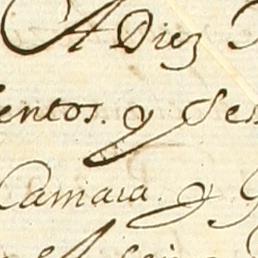 A Diez
entos. y Ses
Camara. y